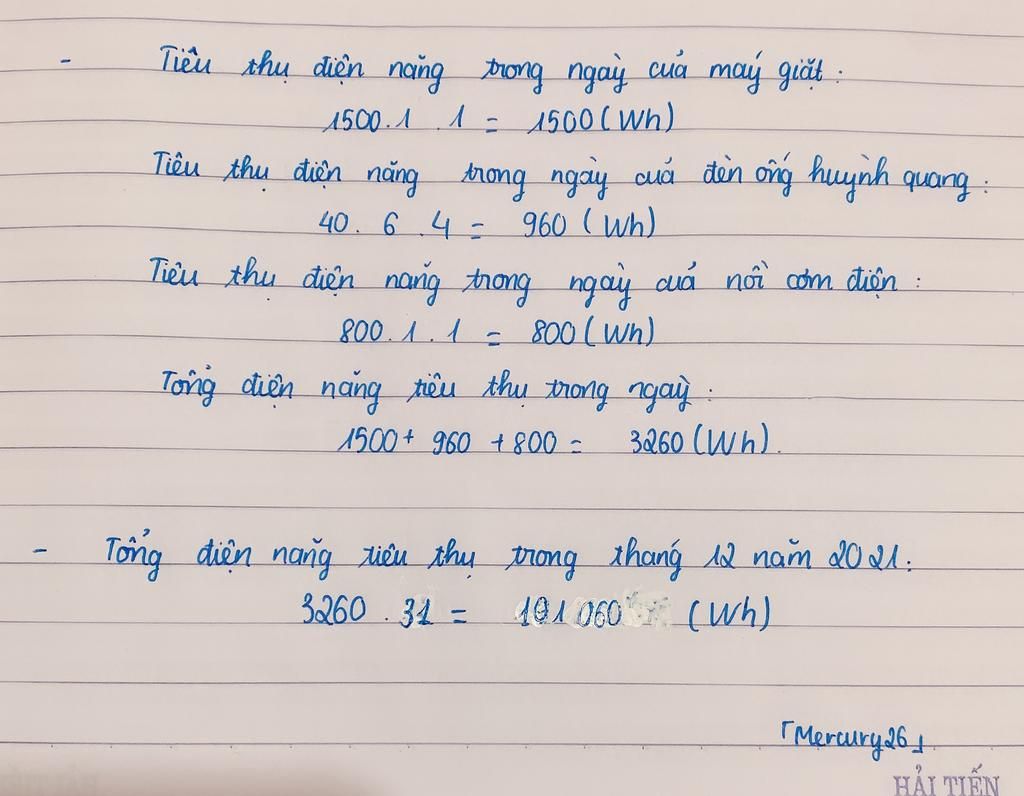 - Tiêu thụ điện năng trong ngày của máy giặt :
1500.1 .1 = 1500(Wh)
Tiêu thụ điện năng trong ngày của đèn ống huỳnh quang :
40. 6 .4 = 960 (Wh)
Tiêu thụ điện năng trong ngày của nồi cơm điện :
800.1.1 = 800(Wh)
Tổng điện năng tiêu thụ trong ngày :
1500+ 960 +800 = 3260(Wh).
- Tổng điện năng tiêu thụ trong tháng 12 năm 2021:
3260 . 31 = 101 060 (Wh)
「Mercury26」
HẢI TIẾN